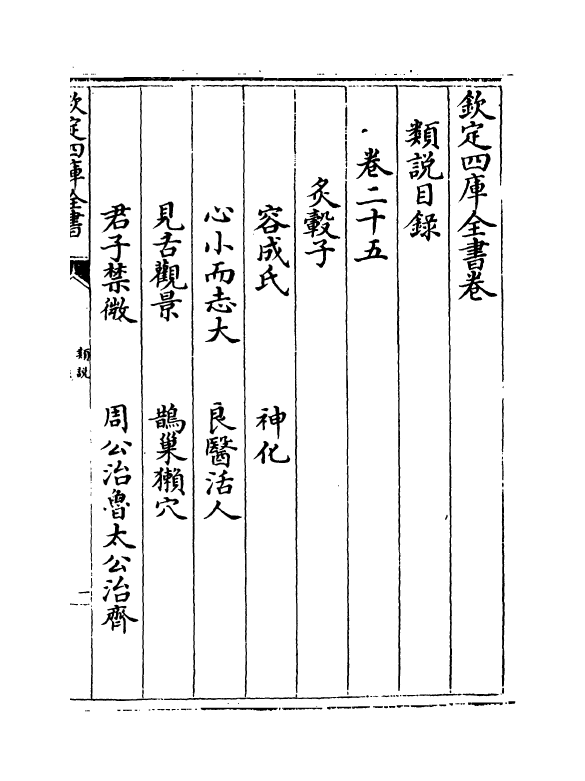 欽定四庫全書卷
類說目錄
卷二十五
炙轂子
容成氏 神化
心小而志大 良醫活人
見舌觀景 鵲巢獺穴
君子禁微 周公治魯太公治齊
欽定四庫全書 類說 一